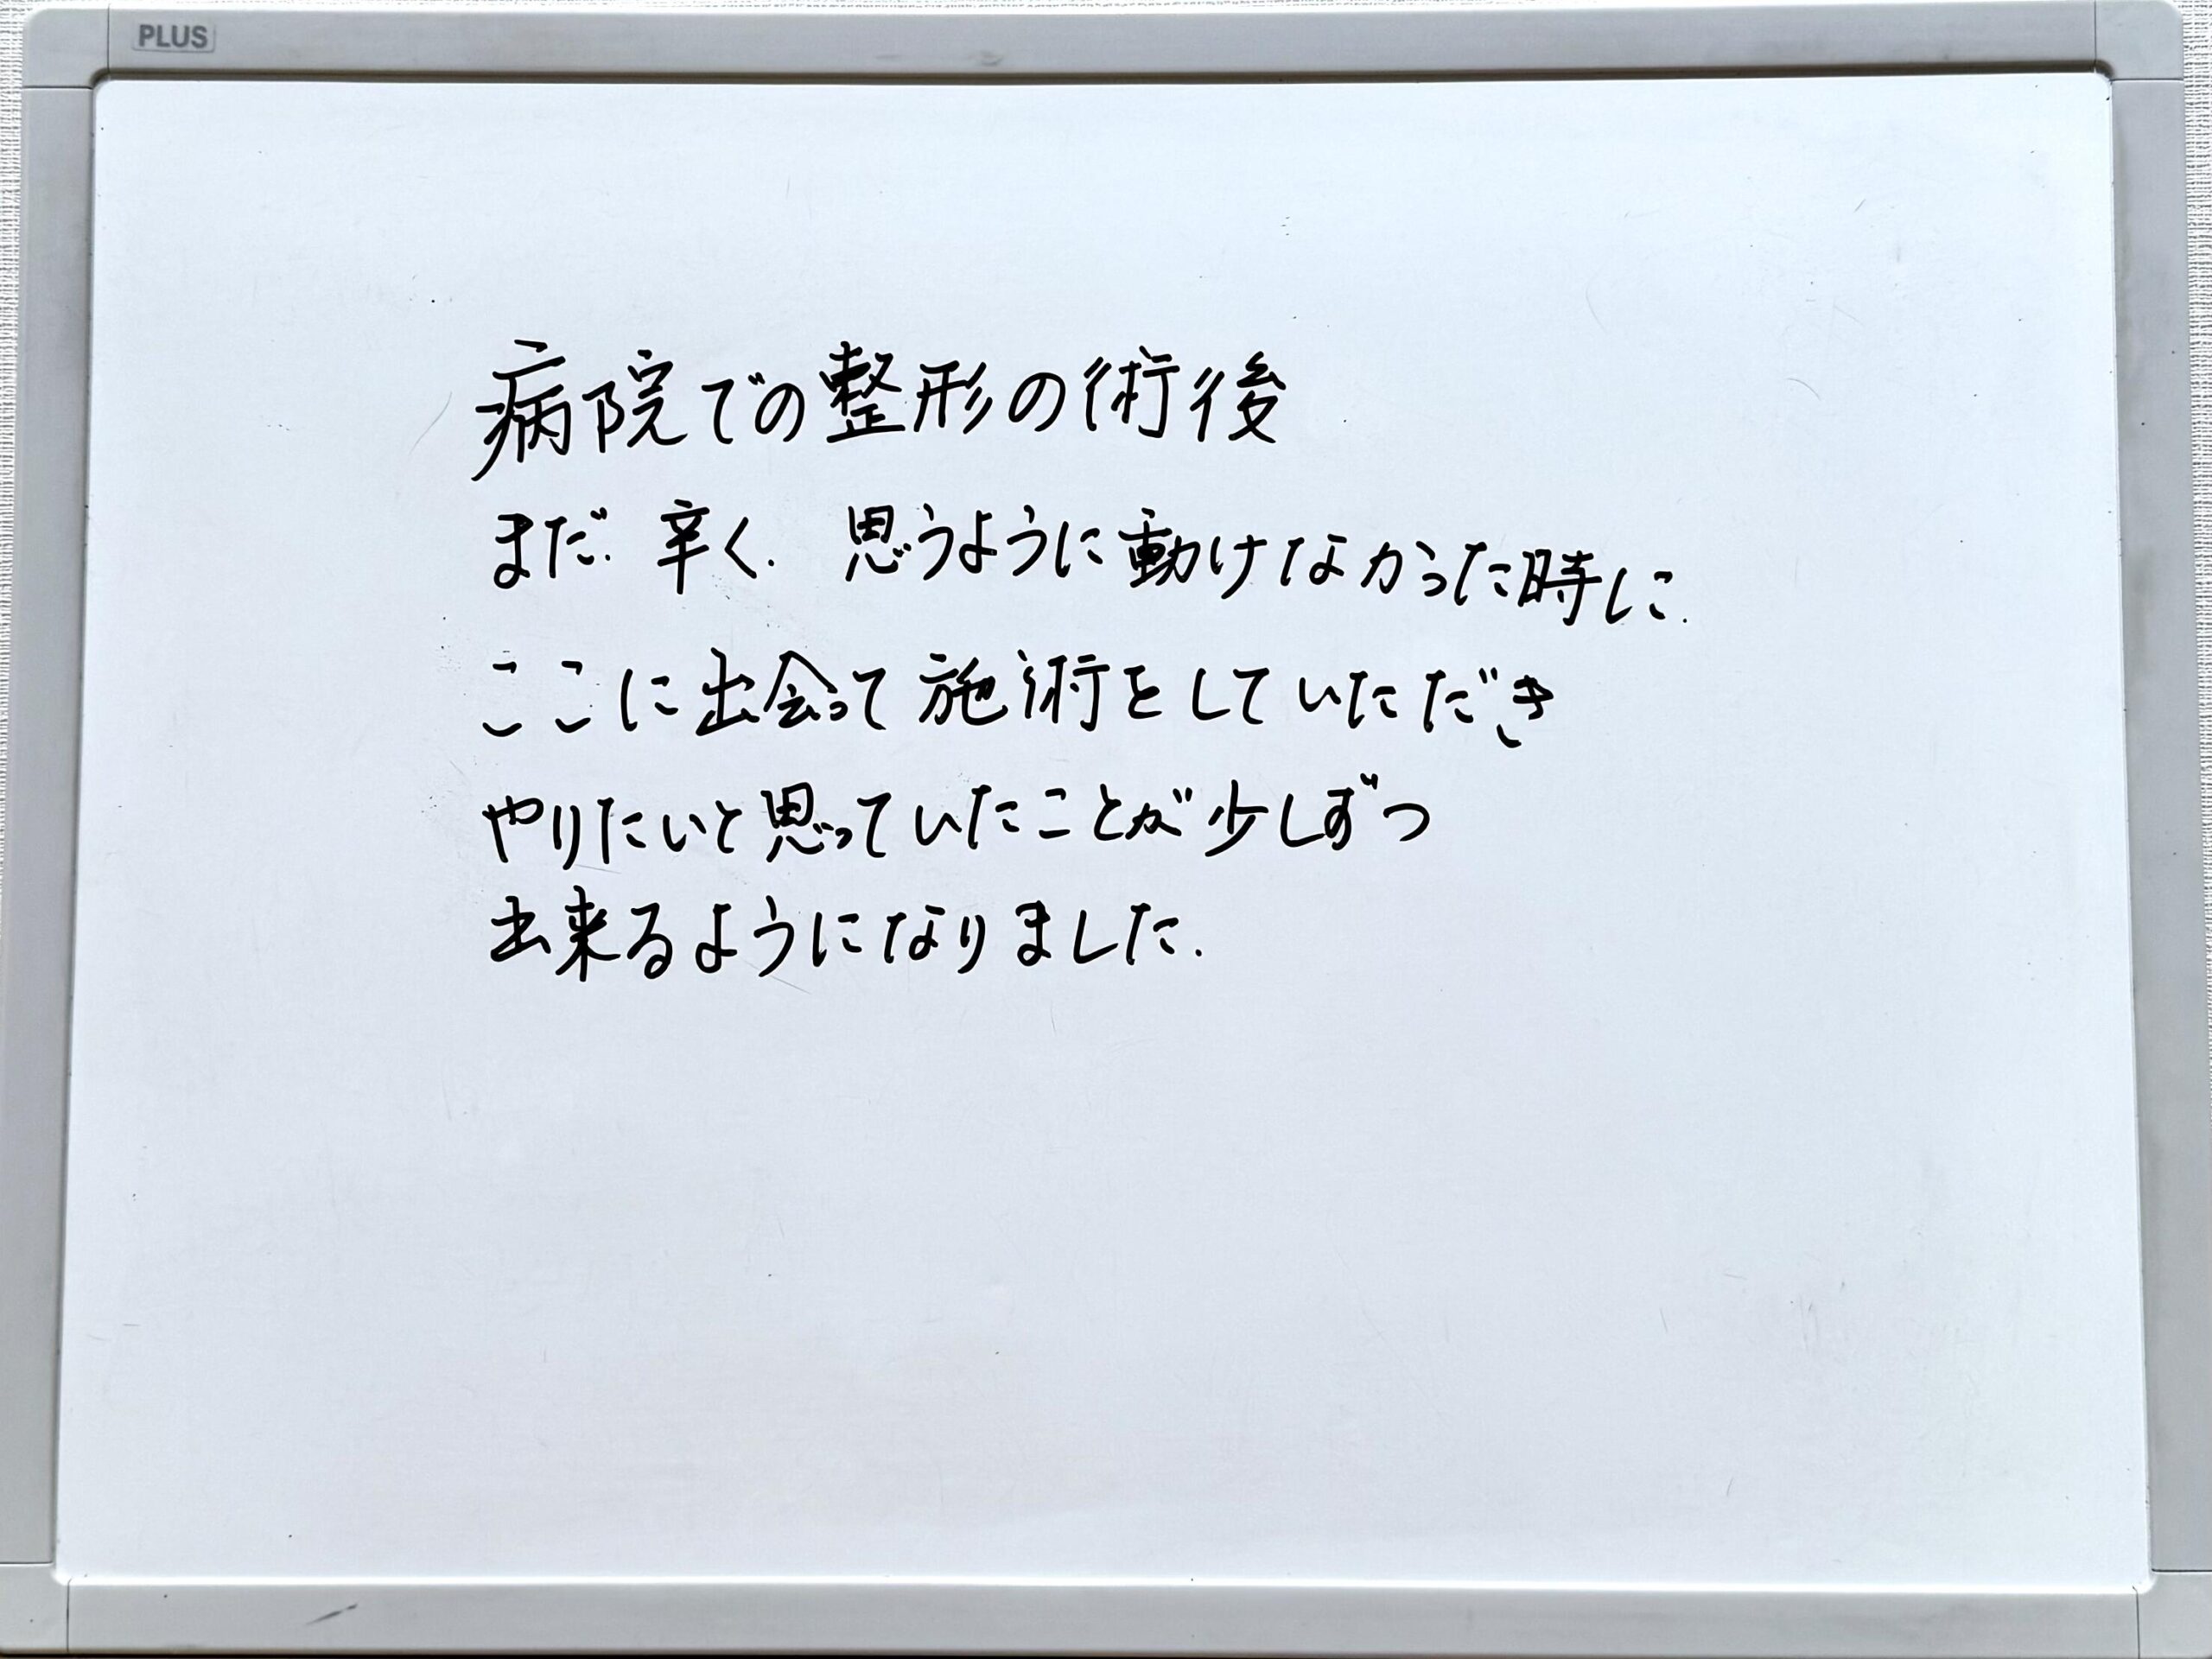 PLUS
病院での整形の術後
まだ. 辛く. 思うように動けなかった時に.
ここに出会って施術をしていただき
やりたいと思っていたことが少しずつ
出来るようになりました.